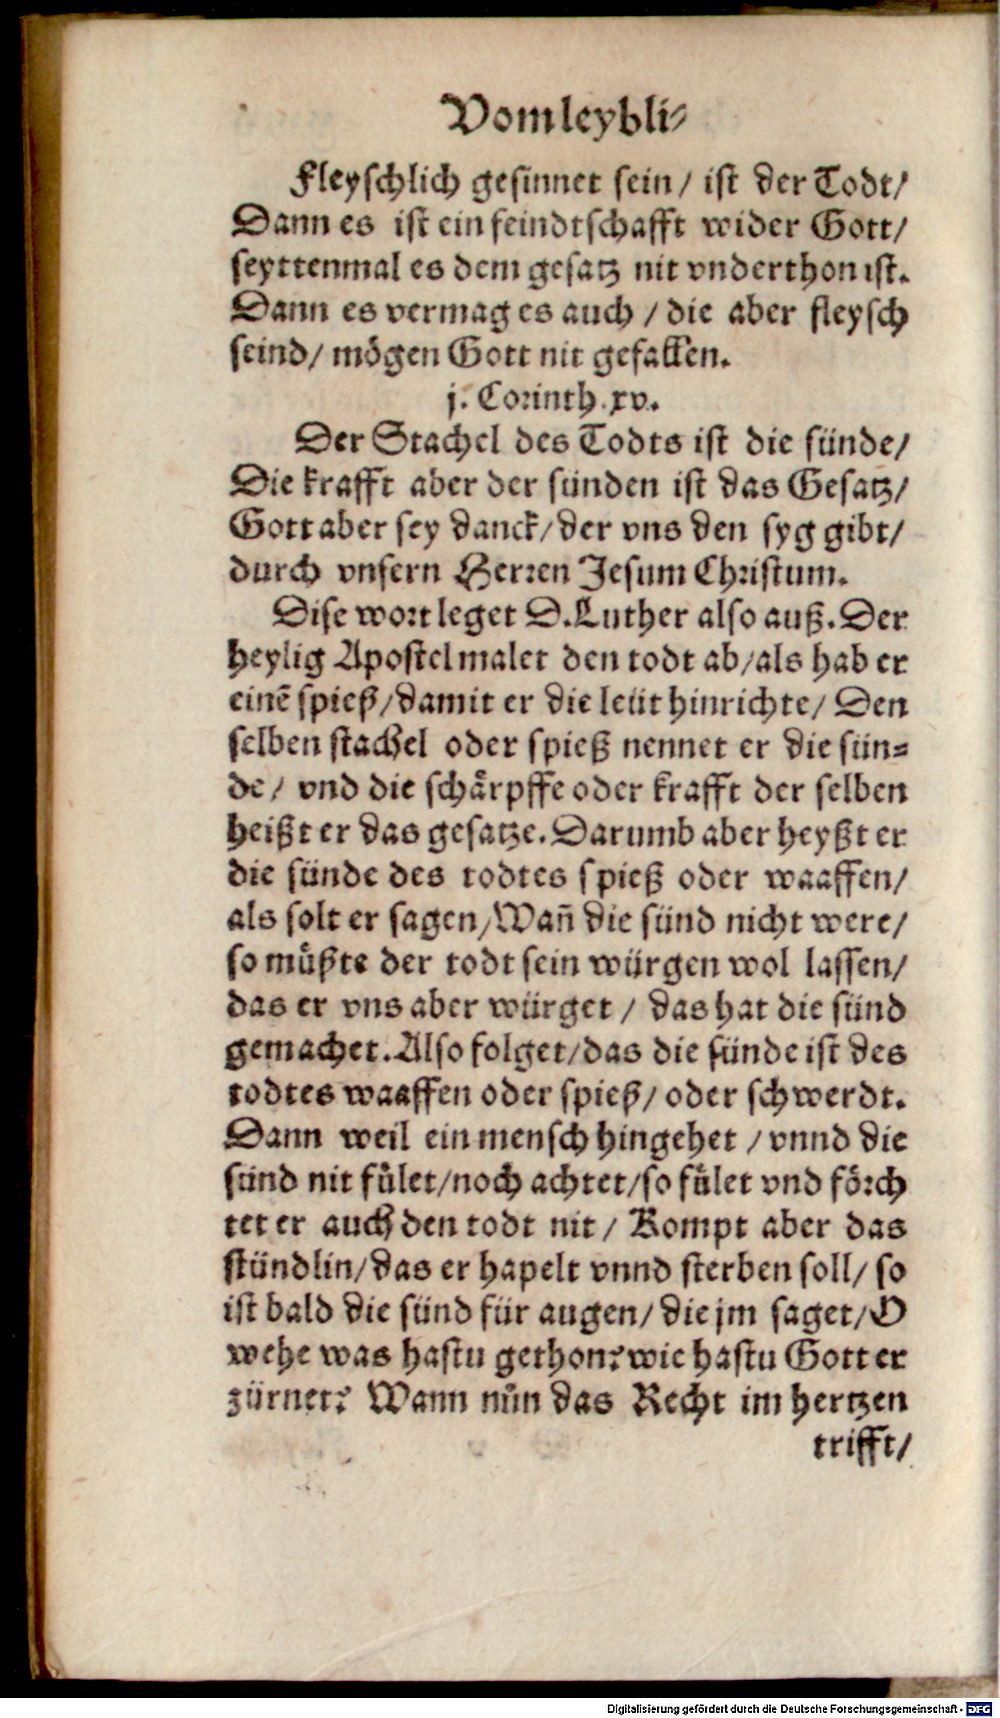 Vom leybli⸗
Fleyschlich gesinnet sein/ ist der Todt/
Dann es ist ein feindtschafft wider Gott/
seyttenmal es dem gesatz nit vnderthon ist.
Dann es vermag es auch / die aber fleysch
seind/ mögen Gott nit gefallen.
j. Corinth. xv.
Der Stachel des Todts ist die sünde/
Die krafft aber der sünden ist das Gesatz/
Gott aber sey danck/ der vns den syg gibt/
durch vnsern Herren Jesum Christum.
Dise wort leget D. Luther also auß. Der
heylig Apostel malet den todt ab/ als hab er
einē spieß/ damit er die leüt hinrichte/ Den
selben stachel oder spieß nennet er die sün⸗
de/ vnd die schärpffe oder krafft der selben
heißt er das gesatze. Darumb aber heyßt er
die sünde des todtes spieß oder waaffen/
als solt er sagen/ Wañ die sünd nicht were/
so müßte der todt sein würgen wol lassen/
das er vns aber würget / das hat die sünd
gemachet. Also folget/ das die sünde ist des
todtes waaffen oder spieß/ oder schwerdt.
Dann weil ein mensch hingehet / vnnd die
sünd nit fület/ noch achtet/ so fület vnd förch
tet er auch den todt nit / Kompt aber das
stündlin/ das er hapelt vnnd sterben soll/ so
ist bald die sünd für augen/ die jm saget/ O
wehe was hastu gethon? wie hastu Gott er
zürnet? Wann nůn das Recht im hertzen
trifft/
Digitalisierung gefördert durch die Deutsche Forschungsgemeinschaft - DFG